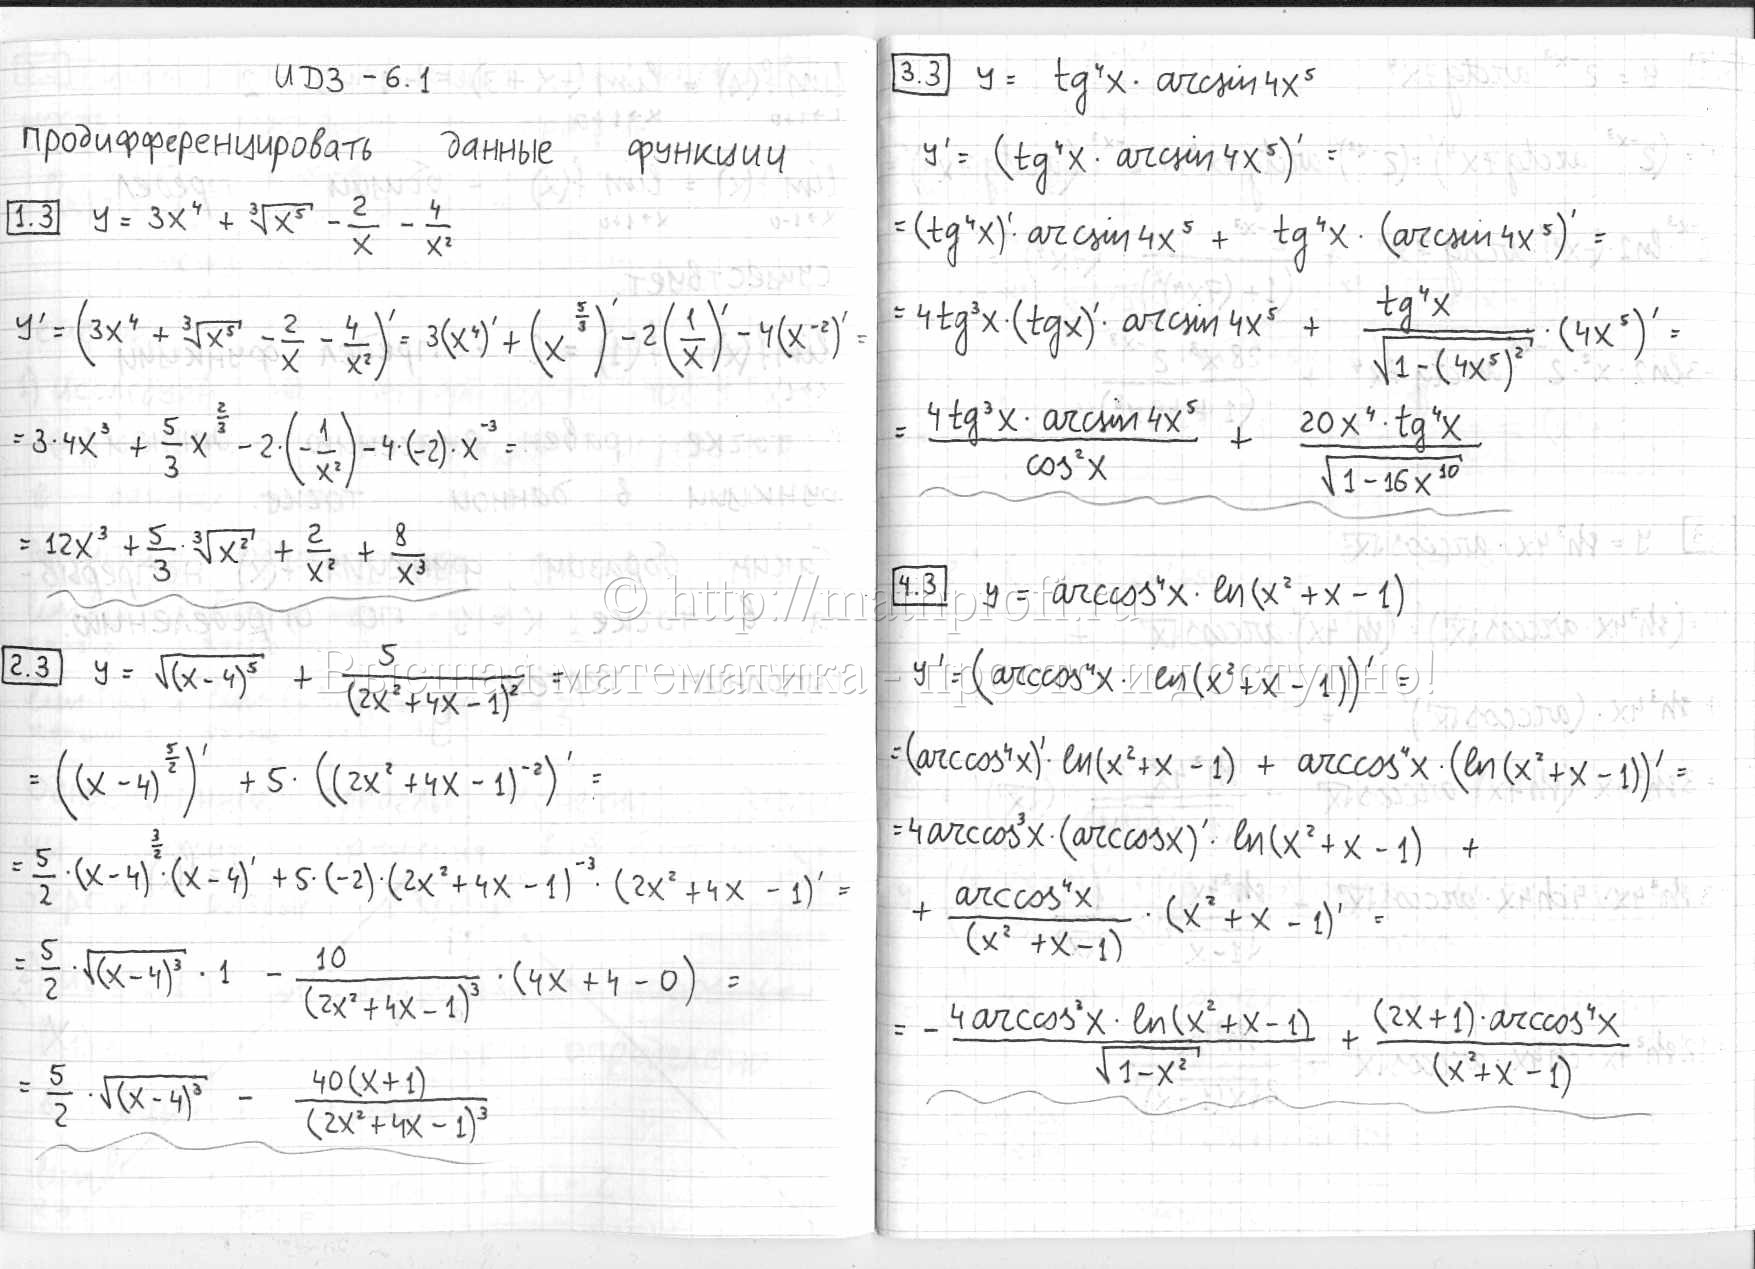 ИДЗ - 6.1
Продифференцировать данные функции
1.3 y = 3x⁴ + ∛(x⁵) - 2/x - 4/x²
y' = (3x⁴ + ∛(x⁵) - 2/x - 4/x²)' = 3(x⁴)' + (x^(5/3))' - 2(1/x)' - 4(x⁻²)' =
= 3·4x³ + 5/3 x^(2/3) - 2·(-1/x²) - 4·(-2)·x⁻³ =
= 12x³ + 5/3 · ∛(x²) + 2/x² + 8/x³
2.3 y = √((x-4)⁵) + 5/(2x²+4x-1)² =
= ((x-4)^(5/2))' + 5·((2x²+4x-1)⁻²)' =
= 5/2 ·(x-4)^(3/2)·(x-4)' + 5·(-2)·(2x²+4x-1)⁻³·(2x²+4x-1)' =
= 5/2 · √((x-4)³) · 1 - 10/(2x²+4x-1)³ ·(4x+4-0) =
= 5/2 · √((x-4)³) - 40(x+1)/(2x²+4x-1)³
3.3 y = tg⁴x · arcsin4x⁵
y' = (tg⁴x · arcsin4x⁵)' =
= (tg⁴x)'· arcsin4x⁵ + tg⁴x · (arcsin4x⁵)' =
= 4tg³x·(tgx)'· arcsin4x⁵ + tg⁴x/√(1-(4x⁵)²) ·(4x⁵)' =
= 4tg³x · arcsin4x⁵/cos²x + 20x⁴·tg⁴x/√(1-16x¹⁰)
4.3 y = arccos⁴x · ln(x²+x-1)
y' = (arccos⁴x · ln(x²+x-1))' =
= (arccos⁴x)'· ln(x²+x-1) + arccos⁴x·(ln(x²+x-1))' =
= 4arccos³x·(arccosx)'· ln(x²+x-1) +
+ arccos⁴x/(x²+x-1) · (x²+x-1)' =
= - 4arccos³x · ln(x²+x-1)/√(1-x²) + (2x+1)·arccos⁴x/(x²+x-1)
© http://mathprofi.ru
Высшая математика – просто и доступно!